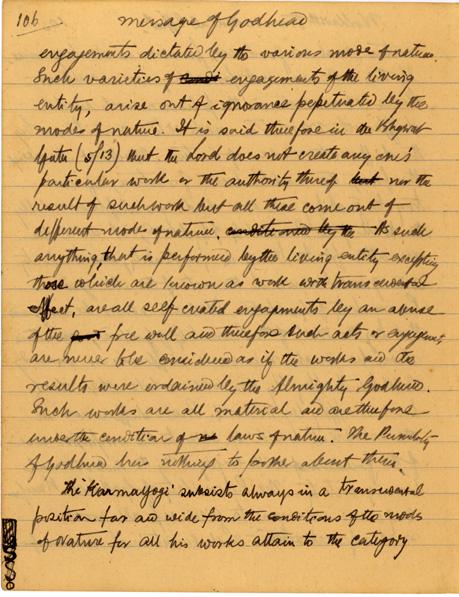 106
message of Godhead
engagements dictated by the various mode of nature.
Such varieties of engagements of the living
entity, arise out of ignorance perpetuated by the
modes of nature. It is said therefore in the Bhagwat
Geeta (5/13) that the Lord does not create any one's
particular work or the authority thereof nor the
result of such work but all these come out of
different modes of nature. conditioned by the As such
anything, that is performed by the living entity excepting
those which are known as work with transcendental
effect, are all self created engagements by an abuse
of the free will and therefore such acts or engagements
are never to be considered as if the works and the
results were ordained by the Almighty Godhead.
Such works are all material and are therefore
under the condition of laws of nature. The
of Godhead has nothing to about them.
The 'Karmayogi' subsists always in a transcendental
position far and wide from the conditions of the modes
of Nature for all his works attain to the category